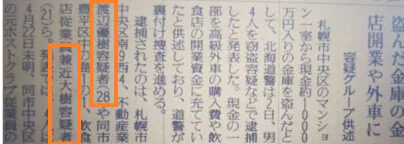 盗んだ金庫の金
店開業や外車に
容疑グループ供述
札幌市中央区のマンショ
ン一室から現金約1000
万円入りの金庫を盗んだと
して、北海道警は2日、男
4人を窃盗容疑などで逮捕
したと発表した。現金の一
部を高級外車の購入費や飲
食店の開業資金に充ててい
たと供述しており、道警が
裏付け捜査を進める。
逮捕されたのは、札幌市
中央区南9西4、不動産業
渡辺優樹容疑者(28)や同市
豊平区
の1の1、飲食
店従業
兼近大樹容疑者
(21)ら。発表では、4人は
4月22日未明、同市中央区
の元ホストクラブ従業員の